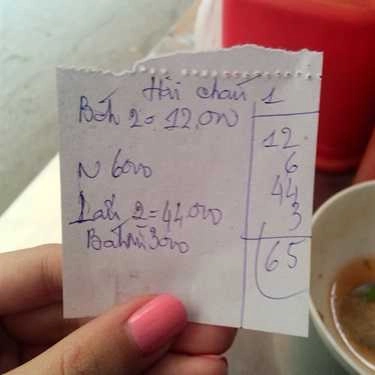 Hải châu 1
Bánh 2 = 12,000
N 6000
Lẩu 2 = 44,000
Bánh mì 3000
12
6
44
3
65